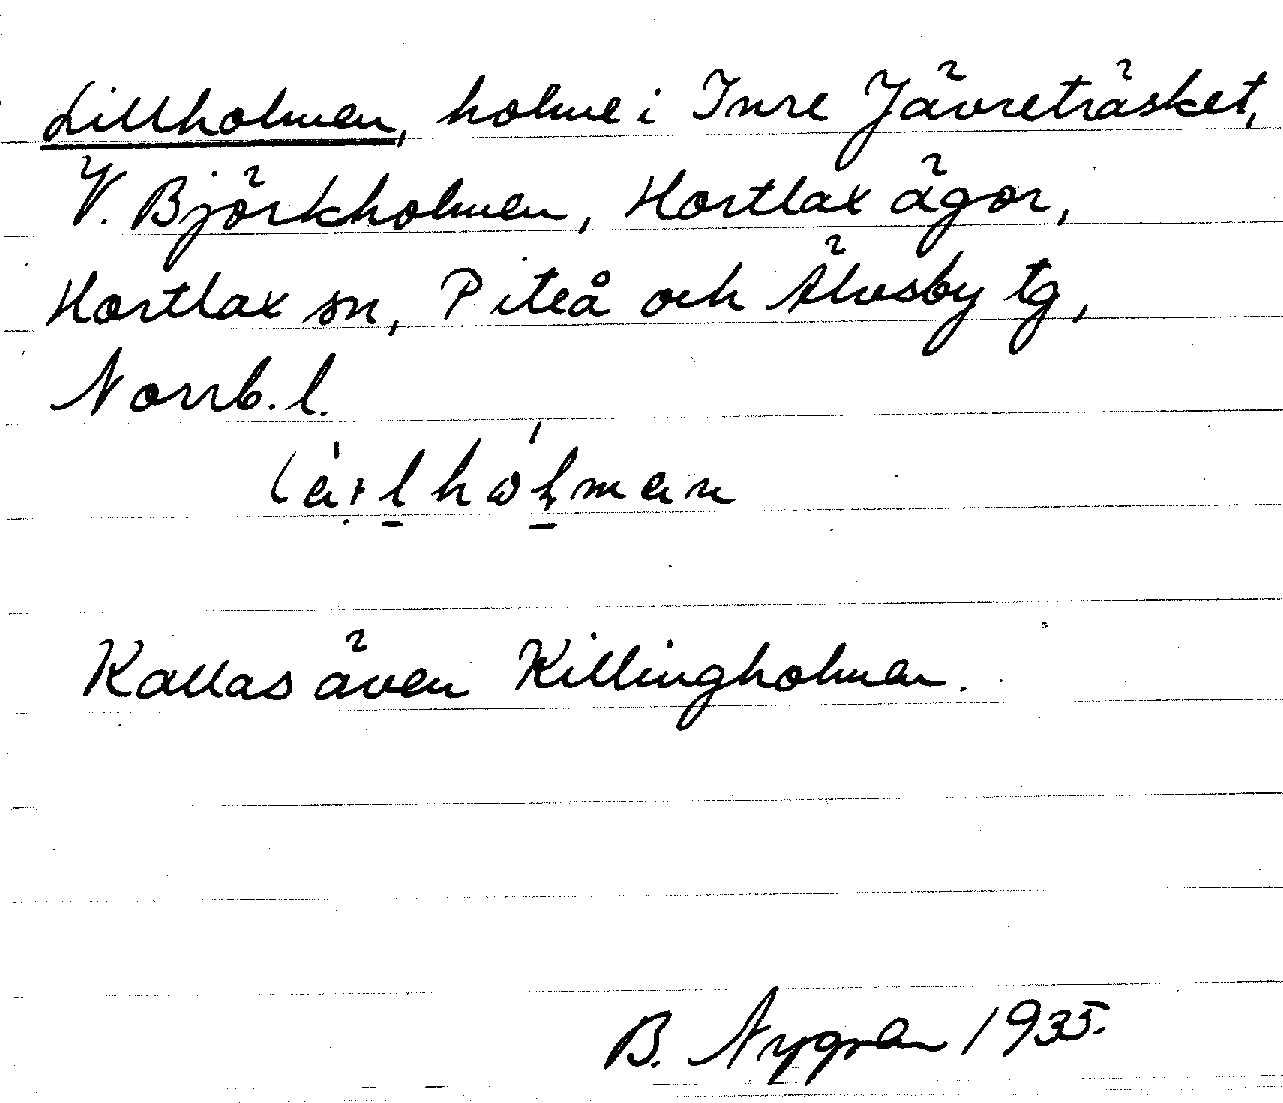 Lillholmen, holme i Inre Jävreträsket,
V. Björkholmen, Hortlax ägor,
Hortlax sn, Piteå och Älvsby tg,
Norrb. l.
Kallas även Killingholmen.
B. Nygren 1935.